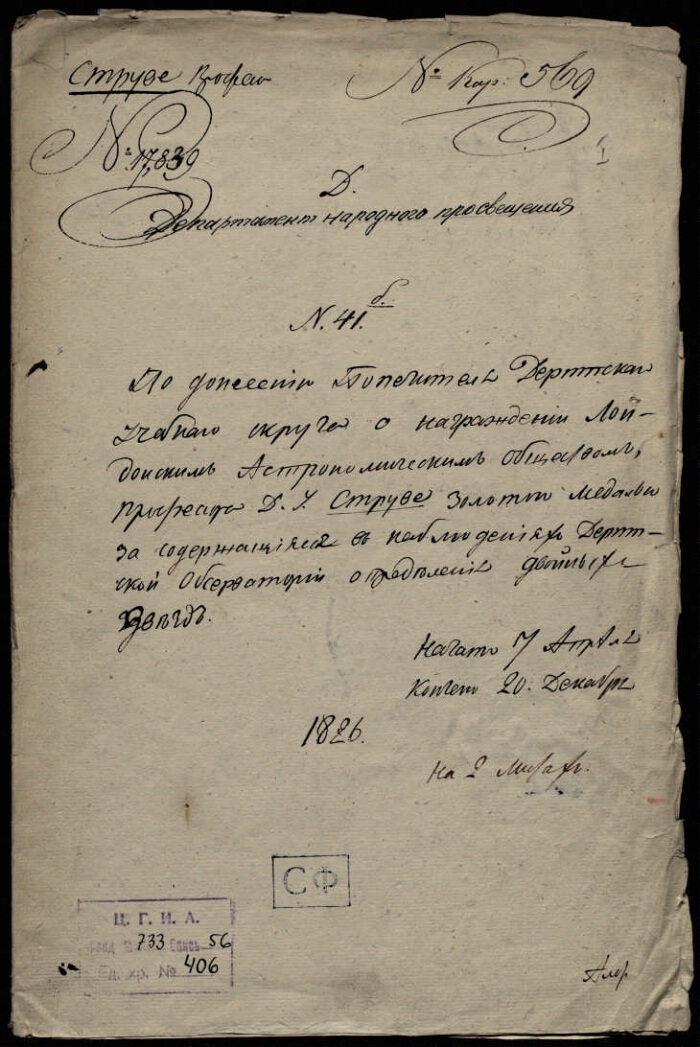 Струве Профес
№ Кар: 569
№ 17,839
I
Д.
Департамент народного просвещения
N. 41.б.
По донесению Попечителя Дерптскаго
учебнаго округа о награждении Лон-
донскимъ Астрономическимъ обществомъ,
Профессора Д. У. Струве Золотой медалью
за содержащіяся въ наблюденіяхъ Дерпт-
ской Обсерваторіи определенія двойныхъ
Звѣздъ.
Начато 7 Апрѣля
Кончено 20. Декабря
1826.
На 2 листахъ.
СФ
Ц. Г. И. А.
Фонд № 733 Опись 56
Ед. хр. № 406